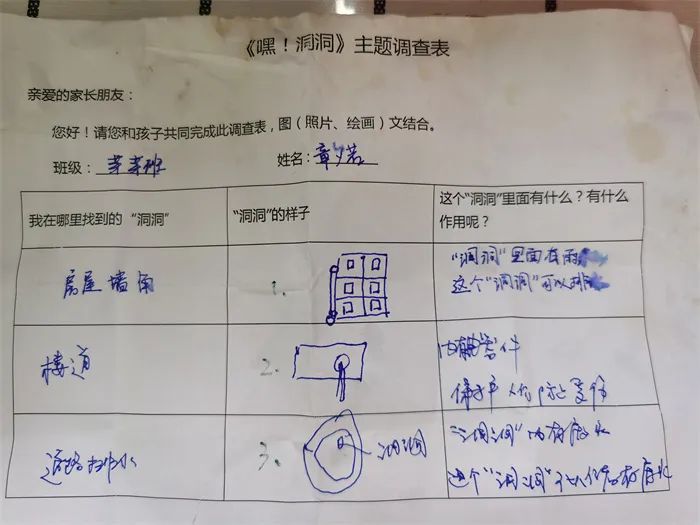 《嘿！洞洞》主题调查表
亲爱的家长朋友：
您好！请您和孩子共同完成此调查表，图（照片、绘画）文结合。
班级： 芽芽班 姓名： 章夕若
我在哪里找到的 “洞洞” “洞洞”的样子 这个“洞洞”里面有什么？有什么作用呢？
房屋墙角 1. “洞洞”里面有雨
这个“洞洞”可以排
楼道 2. 内
道路排水 3. 洞洞 “洞洞”内有废水
这个“洞洞”